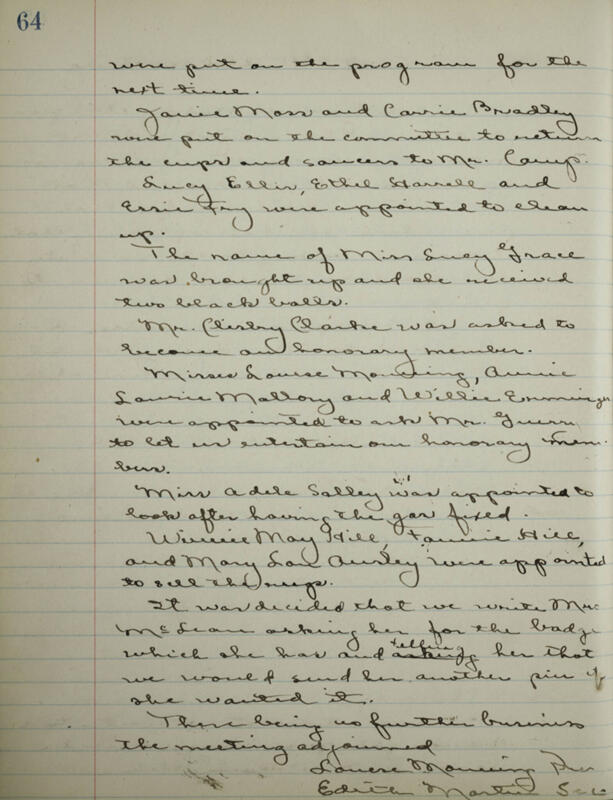 64
were put on the program for the
next time.
Janie Moss and Carrie Bradley
were put on the committee to return
the cups and saucers to Mr. Camp.
Lucy Ellis, Ethel Harrell and
Essie Fry were appointed to clean
up.
The name of Miss Lucy Grace
was brought up and she received
two black balls.
Mr. Clarke was asked to
become an honorary member.
Misses Louise Manning, Annie
Laurie Mallory and Willie
were appointed to ask Mr. Guerry
to let us entertain our honorary mem-
bers.
Miss Adele Salley was appointed to
look after having the gas fixed.
Winnie May Hill, Fannie Hill,
and Mary Lou were appointed
to sell the cups.
It was decided that we write Mrs
McLean asking her for the badge
which she has and asking telling her that
we would send her another pin if
she wanted it.
There being no further business
the meeting adjourned
Louise Manning Pres
Edith Martin Sec